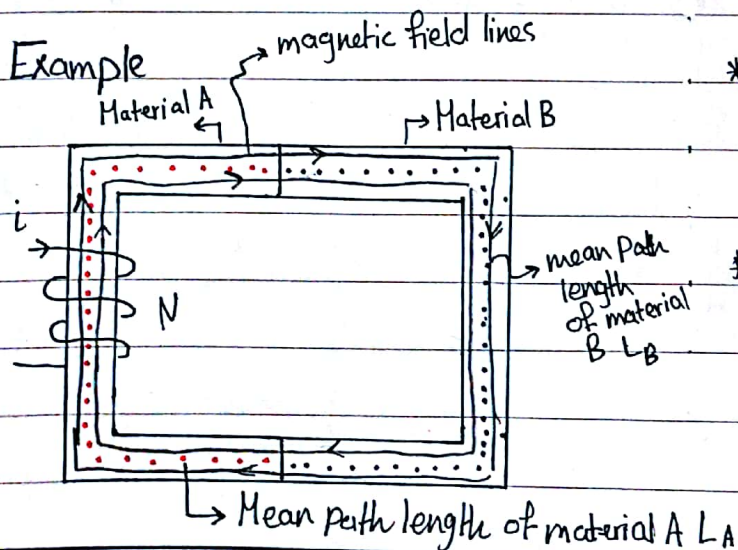 Example
magnetic field lines
Material A
Material B
i
N
mean Path
length
of material
B L_B
Mean path length of material A L_A